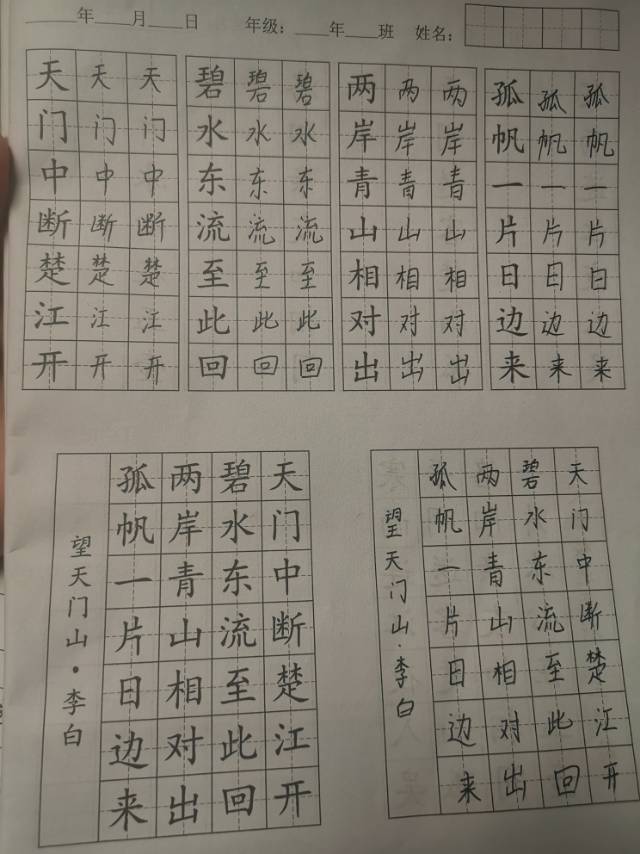 ____年____月____日 年级：____年____班 姓名：
天天天 碧碧碧 两两两 孤孤孤
门门门 水水水 岸岸岸 帆帆帆
中中中 东东东 青青青 一一一
断断断 流流流 山山山 片片片
楚楚楚 至至至 相相相 日日日
江江江 此此此 对对对 边边边
开开开 回回回 出出出 来来来
天门中断楚江开
碧水东流至此回
两岸青山相对出
孤帆一片日边来
望天门山·李白
天门中断楚江开
碧水东流至此回
两岸青山相对出
孤帆一片日边来
望天门山·李白